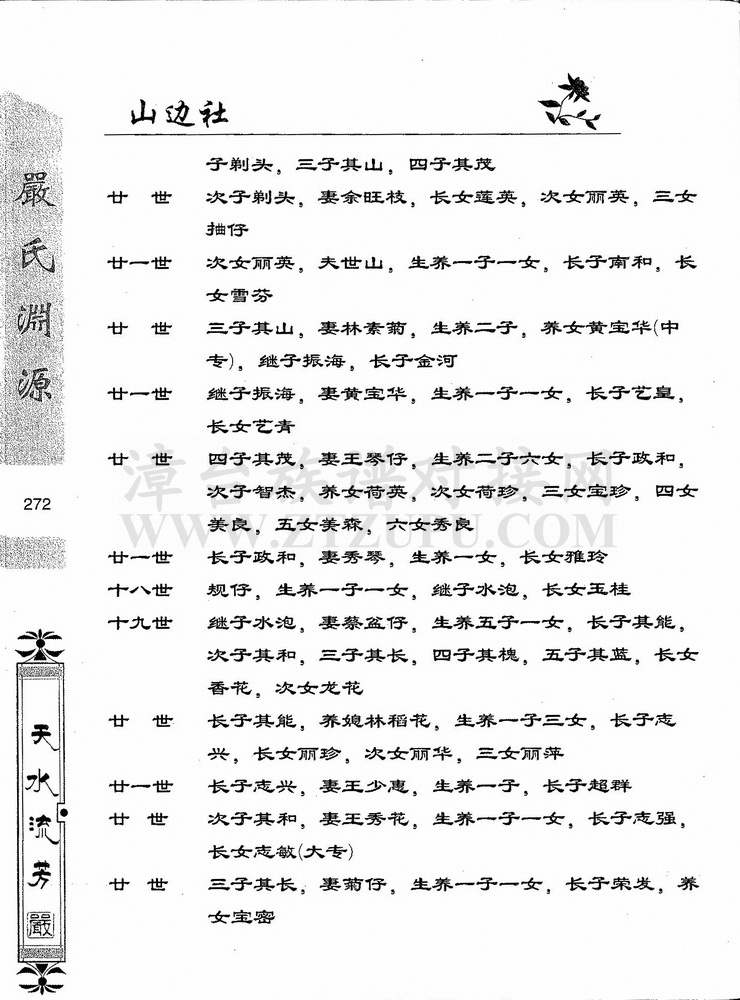 山边社
子剃头，三子其山，四子其茂
廿　世　次子剃头，妻余旺枝，长女莲英，次女丽英，三女
抽仔
廿一世　次女丽英，夫世山，生养一子一女，长子南和，长
女雪芬
廿　世　三子其山，妻林素菊，生养二子，养女黄宝华(中
专)，继子振海，长子金河
廿一世　继子振海，妻黄宝华，生养一子一女，长子艺皇，
长女艺青
廿　世　四子其茂，妻王琴仔，生养二子六女，长子政和，
次子智杰，养女荷英，次女荷珍，三女宝珍，四女
美良，五女美森，六女秀良
廿一世　长子政和，妻秀琴，生养一女，长女雅玲
十八世　规仔，生养一子一女，继子水泡，长女玉桂
十九世　继子水泡，妻蔡盆仔，生养五子一女，长子其能，
次子其和，三子其长，四子其槐，五子其蓝，长女
香花，次女龙花
廿　世　长子其能，养媳林稻花，生养一子三女，长子志
兴，长女丽珍，次女丽华，三女丽萍
廿一世　长子志兴，妻王少惠，生养一子，长子超群
廿　世　次子其和，妻王秀花，生养一子一女，长子志强，
长女志敏(大专)
廿　世　三子其长，妻菊仔，生养一子一女，长子荣发，养
女宝密
嚴氏淵源
272
天水流芳
嚴
漳台族谱对接网
WWW.ZTZUPU.COM